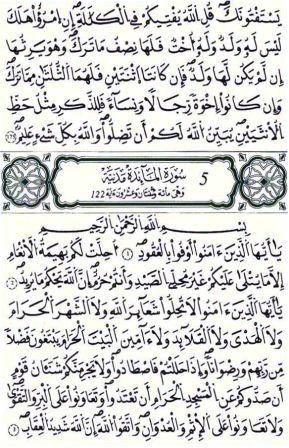 يَسْتَفْتُونَكَ قُلِ اللَّهُ يُفْتِيكُمْ فِي الْكَلَٰلَةِ إِنِ امْرُؤٌا هَلَكَ
لَيْسَ لَهُ وَلَدٌ وَلَهُ أُخْتٌ فَلَهَا نِصْفُ مَا تَرَكَ وَهُوَ يَرِثُهَا
إِن لَّمْ يَكُن لَّهَا وَلَدٌ فَإِن كَانَتَا اثْنَتَيْنِ فَلَهُمَا الثُّلُثَٰنِ مِمَّا تَرَكَ
وَإِن كَانُوا إِخْوَةً رِّجَالًا وَنِسَاءً فَلِلذَّكَرِ مِثْلُ حَظِّ
الْأُنثَيَيْنِ يُبَيِّنُ اللَّهُ لَكُمْ أَن تَضِلُّوا وَاللَّهُ بِكُلِّ شَيْءٍ عَلِيمٌ
سُورَةُ الْمَائِدَةِ مَدَنِيَّة 5
وَهِيَ مِائَة وَثِنْتَانِ وَعِشْرُونَ آيَة 122
بِسْمِ اللَّهِ الرَّحْمَٰنِ الرَّحِيمِ
يَٰأَيُّهَا الَّذِينَ ءَامَنُوا أَوْفُوا بِالْعُقُودِ (1) أُحِلَّتْ لَكُم بَهِيمَةُ الْأَنْعَٰمِ
إِلَّا مَا يُتْلَىٰ عَلَيْكُمْ غَيْرَ مُحِلِّي الصَّيْدِ وَأَنتُمْ حُرُمٌ إِنَّ اللَّهَ يَحْكُمُ مَا يُرِيدُ (2)
يَٰأَيُّهَا الَّذِينَ ءَامَنُوا لَا تُحِلُّوا شَعَٰئِرَ اللَّهِ وَلَا الشَّهْرَ الْحَرَامَ
وَلَا الْهَدْيَ وَلَا الْقَلَٰئِدَ وَلَا ءَامِّينَ الْبَيْتَ الْحَرَامَ يَبْتَغُونَ فَضْلًا
مِّن رَّبِّهِمْ وَرِضْوَٰنًا وَإِذَا حَلَلْتُمْ فَاصْطَادُوا وَلَا يَجْرِمَنَّكُمْ شَنَـَٔانُ قَوْمٍ
أَن صَدُّوكُمْ عَنِ الْمَسْجِدِ الْحَرَامِ أَن تَعْتَدُوا وَتَعَاوَنُوا عَلَى الْبِرِّ وَالتَّقْوَىٰ
وَلَا تَعَاوَنُوا عَلَى الْإِثْمِ وَالْعُدْوَٰنِ وَاتَّقُوا اللَّهَ إِنَّ اللَّهَ شَدِيدُ الْعِقَابِ (3)